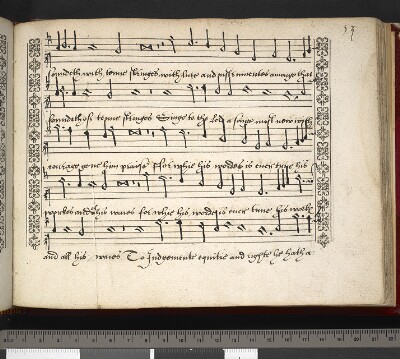 soundeth with tenne stringes with lute and instrumentes amonge that
soundeth of tenne stringes Singe to the Lord a songe most new with
courage geve him praise For whie his wordes is ever true his
workes and his waies for whie his worde is ever true his work
and all his waies To Judgemente equitie and right he hath a